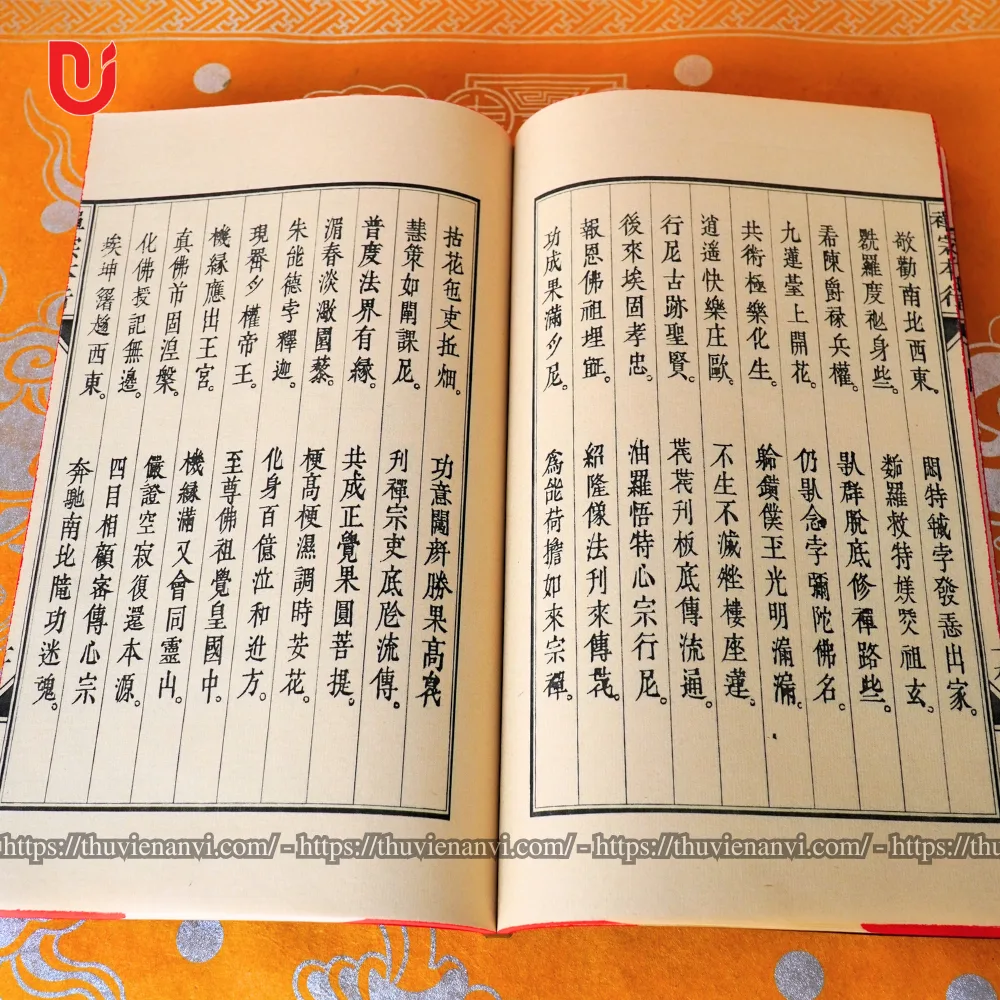 禪宗本行
敬勸南北西東。
悶特孛發出家。
羅度身些。
羅救特祖玄。
陳爵祿兵權。
群脫底修禪路些。
九蓮臺上開花。
仍念孛彌陀佛名。
共術極樂化生。
僕玉光明。
逍遥快樂庄歐。
不生不滅樓座蓮。
行尼古跡聖賢。
刊板底傳流通。
後來埃固孝忠。
油羅悟特心宗行尼。
報恩佛祖埋。
紹隆像法刊來傳。
功成果滿尼。
爲能荷擔如來宗禪。
花㐌吏畑。
功意勝果高
慧策如闡課尼。
刊禪宗吏底流傳。
普度法界有緣。
共成正覺果圓菩提。
湄春淡園。
梗高梗濕調時花。
朱能德孛釋迦。
化身百億泣和方。
現權帝王。
至尊佛祖覺皇國中。
機緣應出王宮。
機緣滿又會同靈山。
真佛固涅槃。
儼證空寂復還本源。
化佛授記無邊。
四目相顧密傳心宗
埃坤趨西東。
奔馳南北功迷魂。
https://thuvienanvi.com/ - https://thuvienanvi.com/ - https://thuvienanvi.com/ - https://